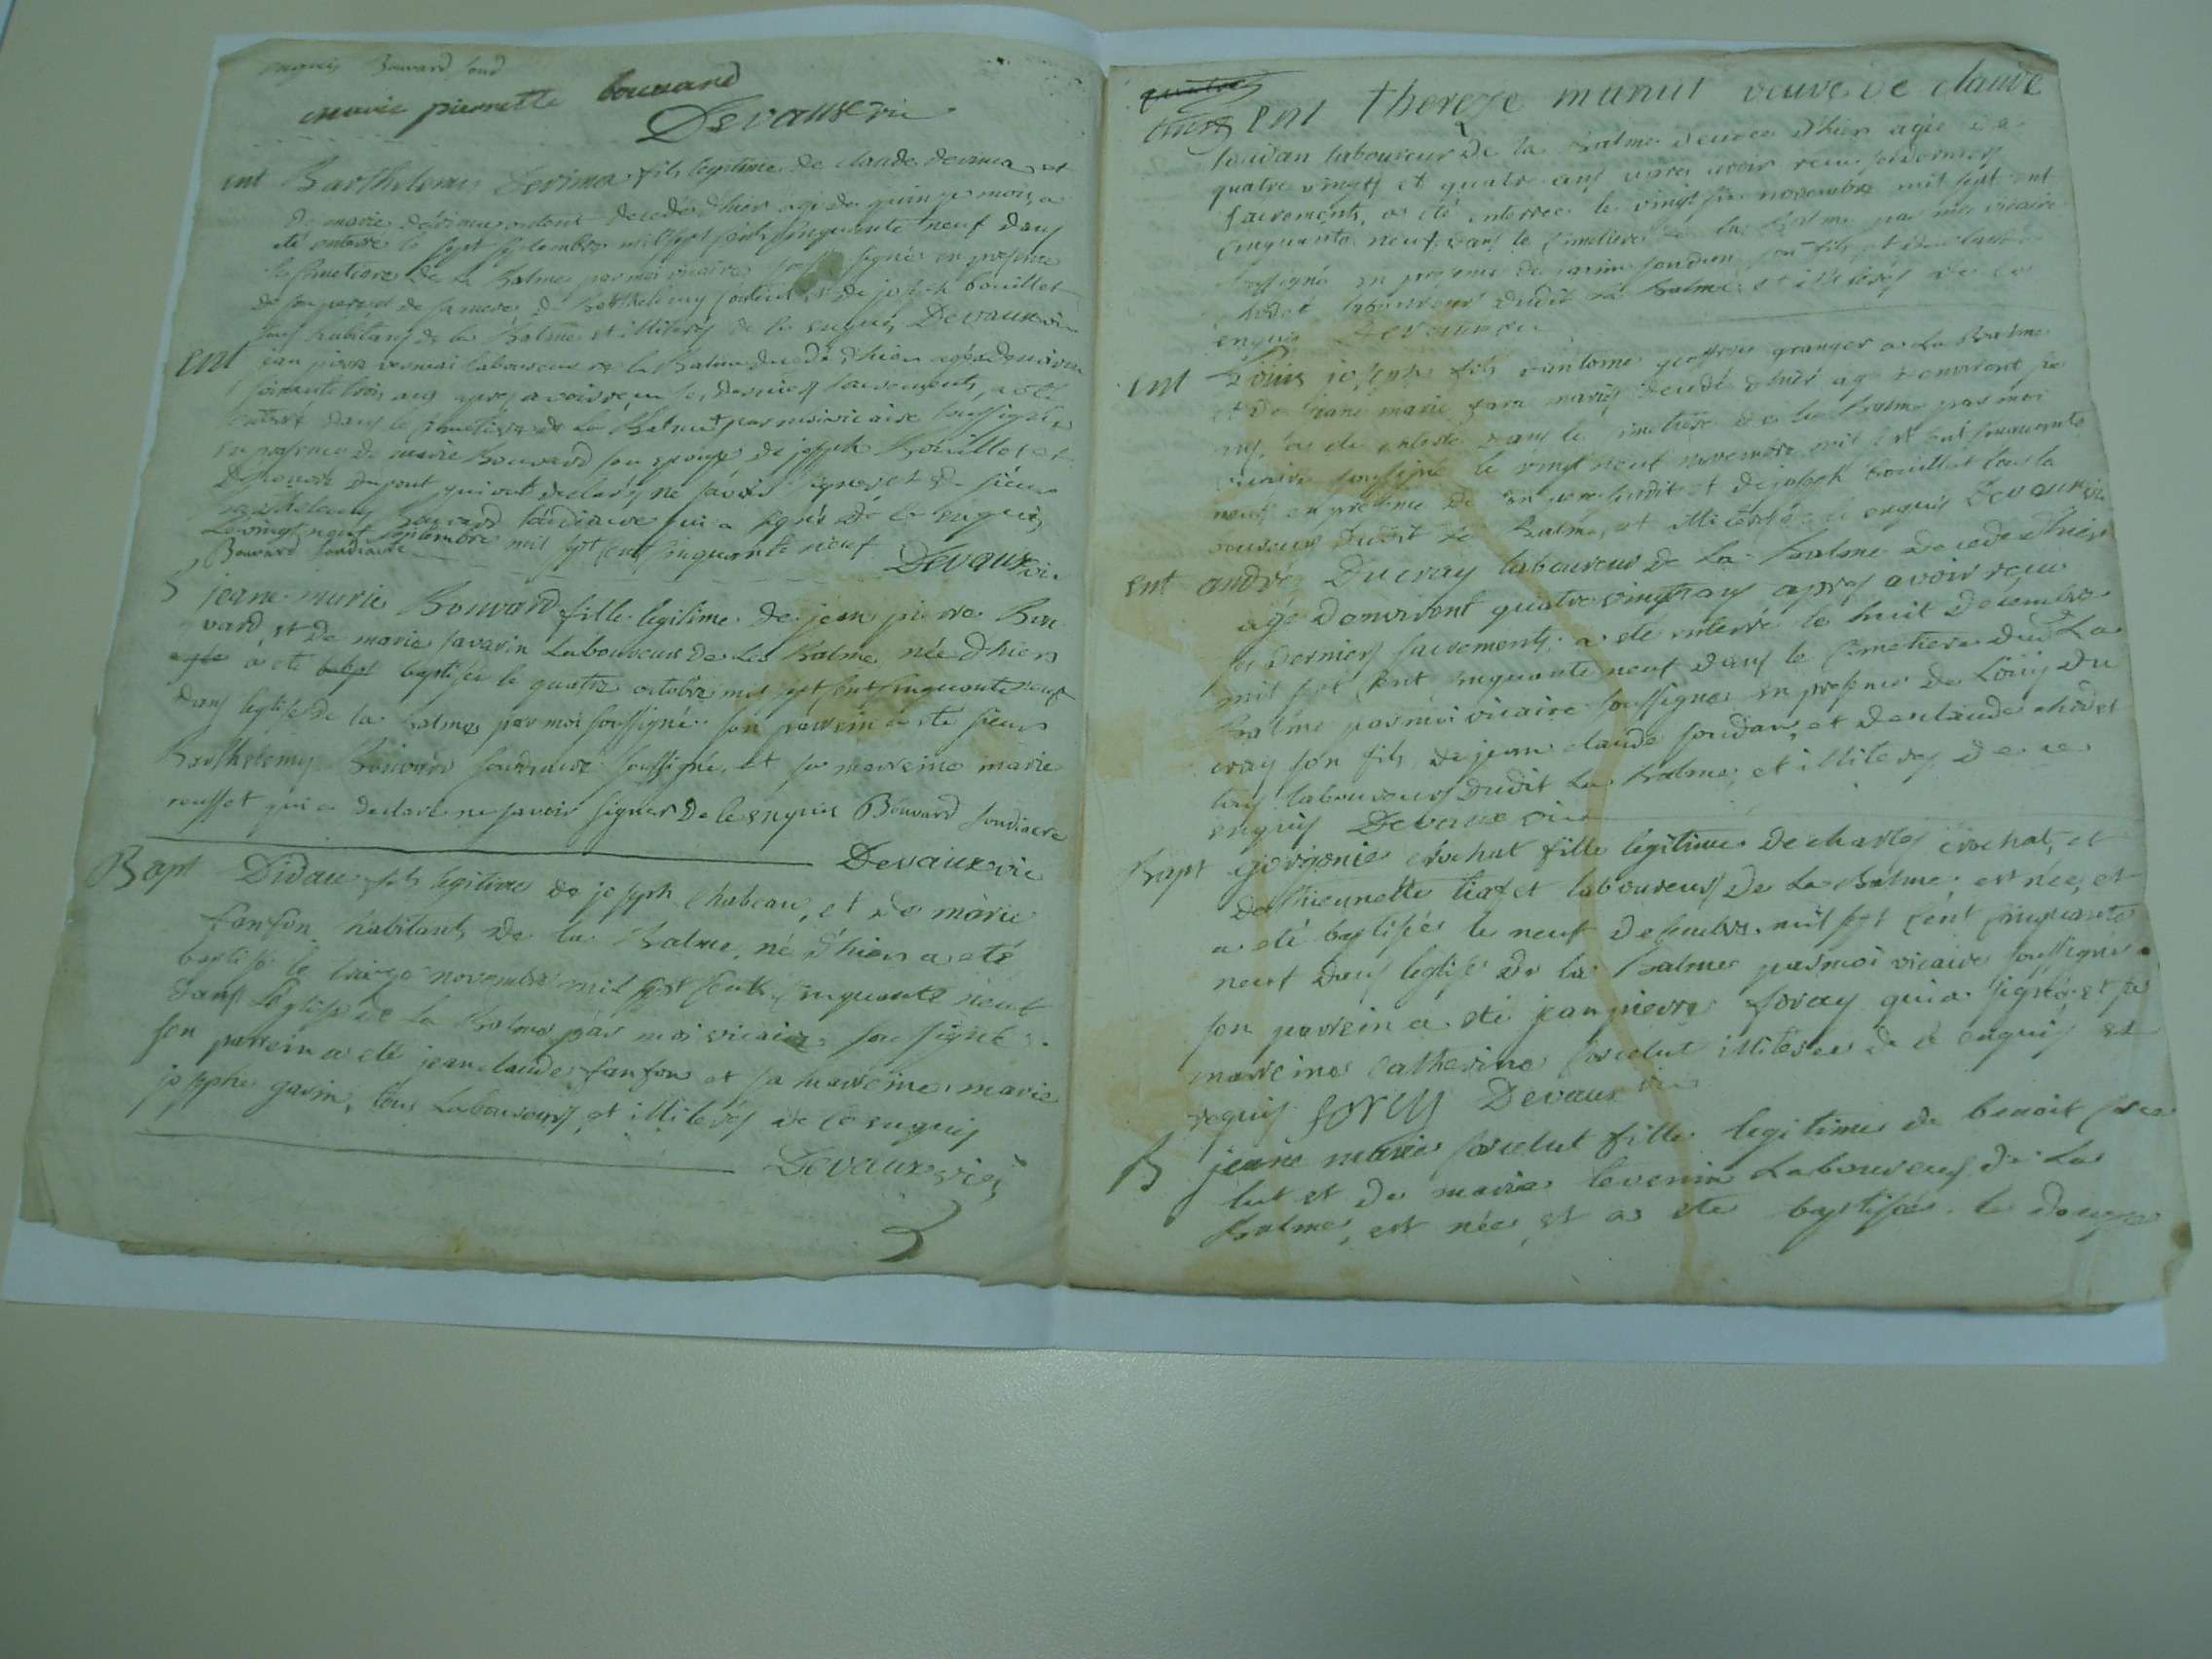 enquis Bouvard soud
marie pierrette bouvard
Devaux vic
ent Barthelemi Devima fils legitime de claude devima et
de marie decede d'hier agé de quinze mois, a
été enterré le sept septembre mil sept cents cinquante neuf dans
le cimetiere de la Balme par moi vicaire soussigné en presence
de son pere et de sa mere de Barthelemy et de joseph bouillet
tous habitans de la Balme et illiterés de ce enquis, Devaux vic
ent jean pierre laboureur de la Balme decedé d'hier agé d'environ
soixante trois ans apres avoir reçu ses derniers sacrements, a été
enterré dans le cimetiere de la Balme par moi vicaire soussigné,
en presence de marie Bouvard son epouse, de joseph Bouillet et
Dupont qui ont declarés ne savoir signer et de sieur
Barthelemy Bouvard soudiacre qui a signé de ce enquis
Le vingt neuf septembre mil sept cent cinquante neuf
Bouvard soudiacre Devaux vic
B jeane marie Bouvard fille legitime de jean pierre Bou
vard, et de marie savarin Laboureur de La Balme, née d'hier
a été bapt baptisée le quatre octobre mil sept cent cinquante neuf
dans leglise de la Balme par moi soussigné son parrein a été sieur
Barthelemy Bouvard soudiacre soussigné, et sa marreine marie
rousset qui a declaré ne savoir signer de ce enquis Bouvard soudiacre
Devaux vic
Bapt Didace fils legitime de joseph Chabeau, et de marie
fanfon habitants de la Balme, né d'hier a eté
baptisé le novembre mil sept cents cinquante neuf
dans L'eglise de la Balme par moi vicaire soussigné
son parrein a eté jean claude fanfon et sa marreine marie
josephe gavin, tous Laboureurs, et illiterés de ce enquis
Devaux vic
ent thereze munut veuve de claude
soudan laboureur de la Balme decedee d'hier agée de
quatre vingts et quatre ans apres avoir reçu ses derniers
sacrements, a été enterrée le vingt six novembre mil sept cent
cinquante neuf dans le cimetiere de la Balme par moi vicaire
soussigné en presence de soudan son fils, et de claude
chodet laboureurs dudit La Balme et illiterés de ce
enquis Devaux vic
ent Louis joseph fils d'antoine geoffroi granger a La Balme
et de jeane marie decedé d'hier agé d'environt six
ans, a été enterré dans le cimetiere de la Balme par moi
vicaire soussigné le vingt neuf novembre mil sept cent cinquante
neuf en presence de son pere susdit et de joseph bouillet tous la
boureurs dudit La Balme, et illiterés de ce enquis Devaux vic
ent andré Ducray laboureur de La Balme decedé d'hier
agé d'environt quatre vingt ans apres avoir reçu
ses derniers sacrements a eté enterré le huit decembre
mil sept cent cinquante neuf dans le cimetiere dud La
Balme par moi vicaire soussigné en presence de Louis Du
cray son fils, de jean claude soudan, et de claude chodet
tous laboureurs dudit La Balme, et illiterés de ce
enquis Devaux vic
Bapt gorgonie crochat fille legitime de charles crochat, et
de thieunette tiaset laboureurs de La Balme, est née, et
a eté baptisée le neuf decembre mil sept cent cinquante
neuf dans leglise de la Balme par moi vicaire soussigné
son parrein a eté jean pierre foray qui a signé, et sa
marreine Catherine sorclut illiterée de ce enquis et
requis foray Devaux vic
B jeane marie sorclut fille legitime de benoit sorc
lut et de marie tevenin Laboureurs de La
Balme, est née, et a ete baptisée le douze